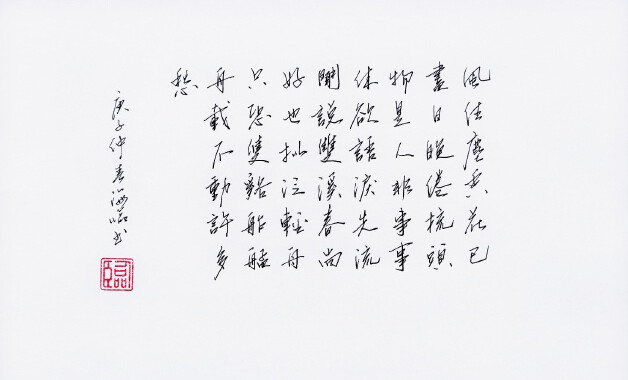 風住塵香花已
盡日晚倦梳頭
物是人非事事
休欲語淚先流
聞說雙溪春尚
好也拟泛輕舟
只恐雙谿舴艋
舟載不動許多
愁
庚子仲春海临书